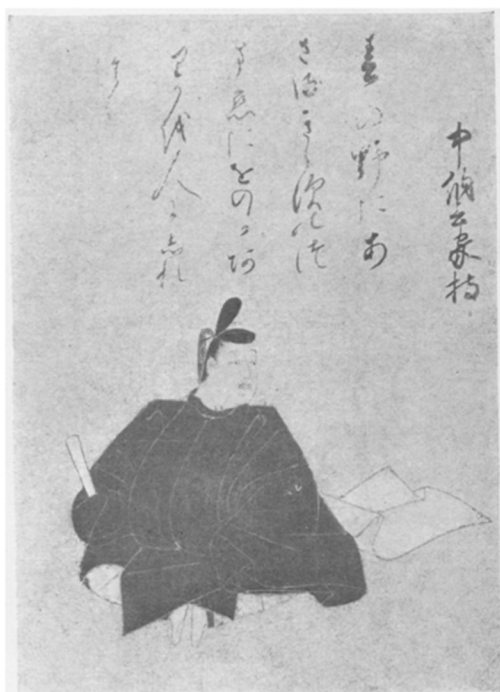 中納言家持
春の野にあ
さるきゝすのつ
ま恋にをのかあ
りかを人にしれ
つゝ